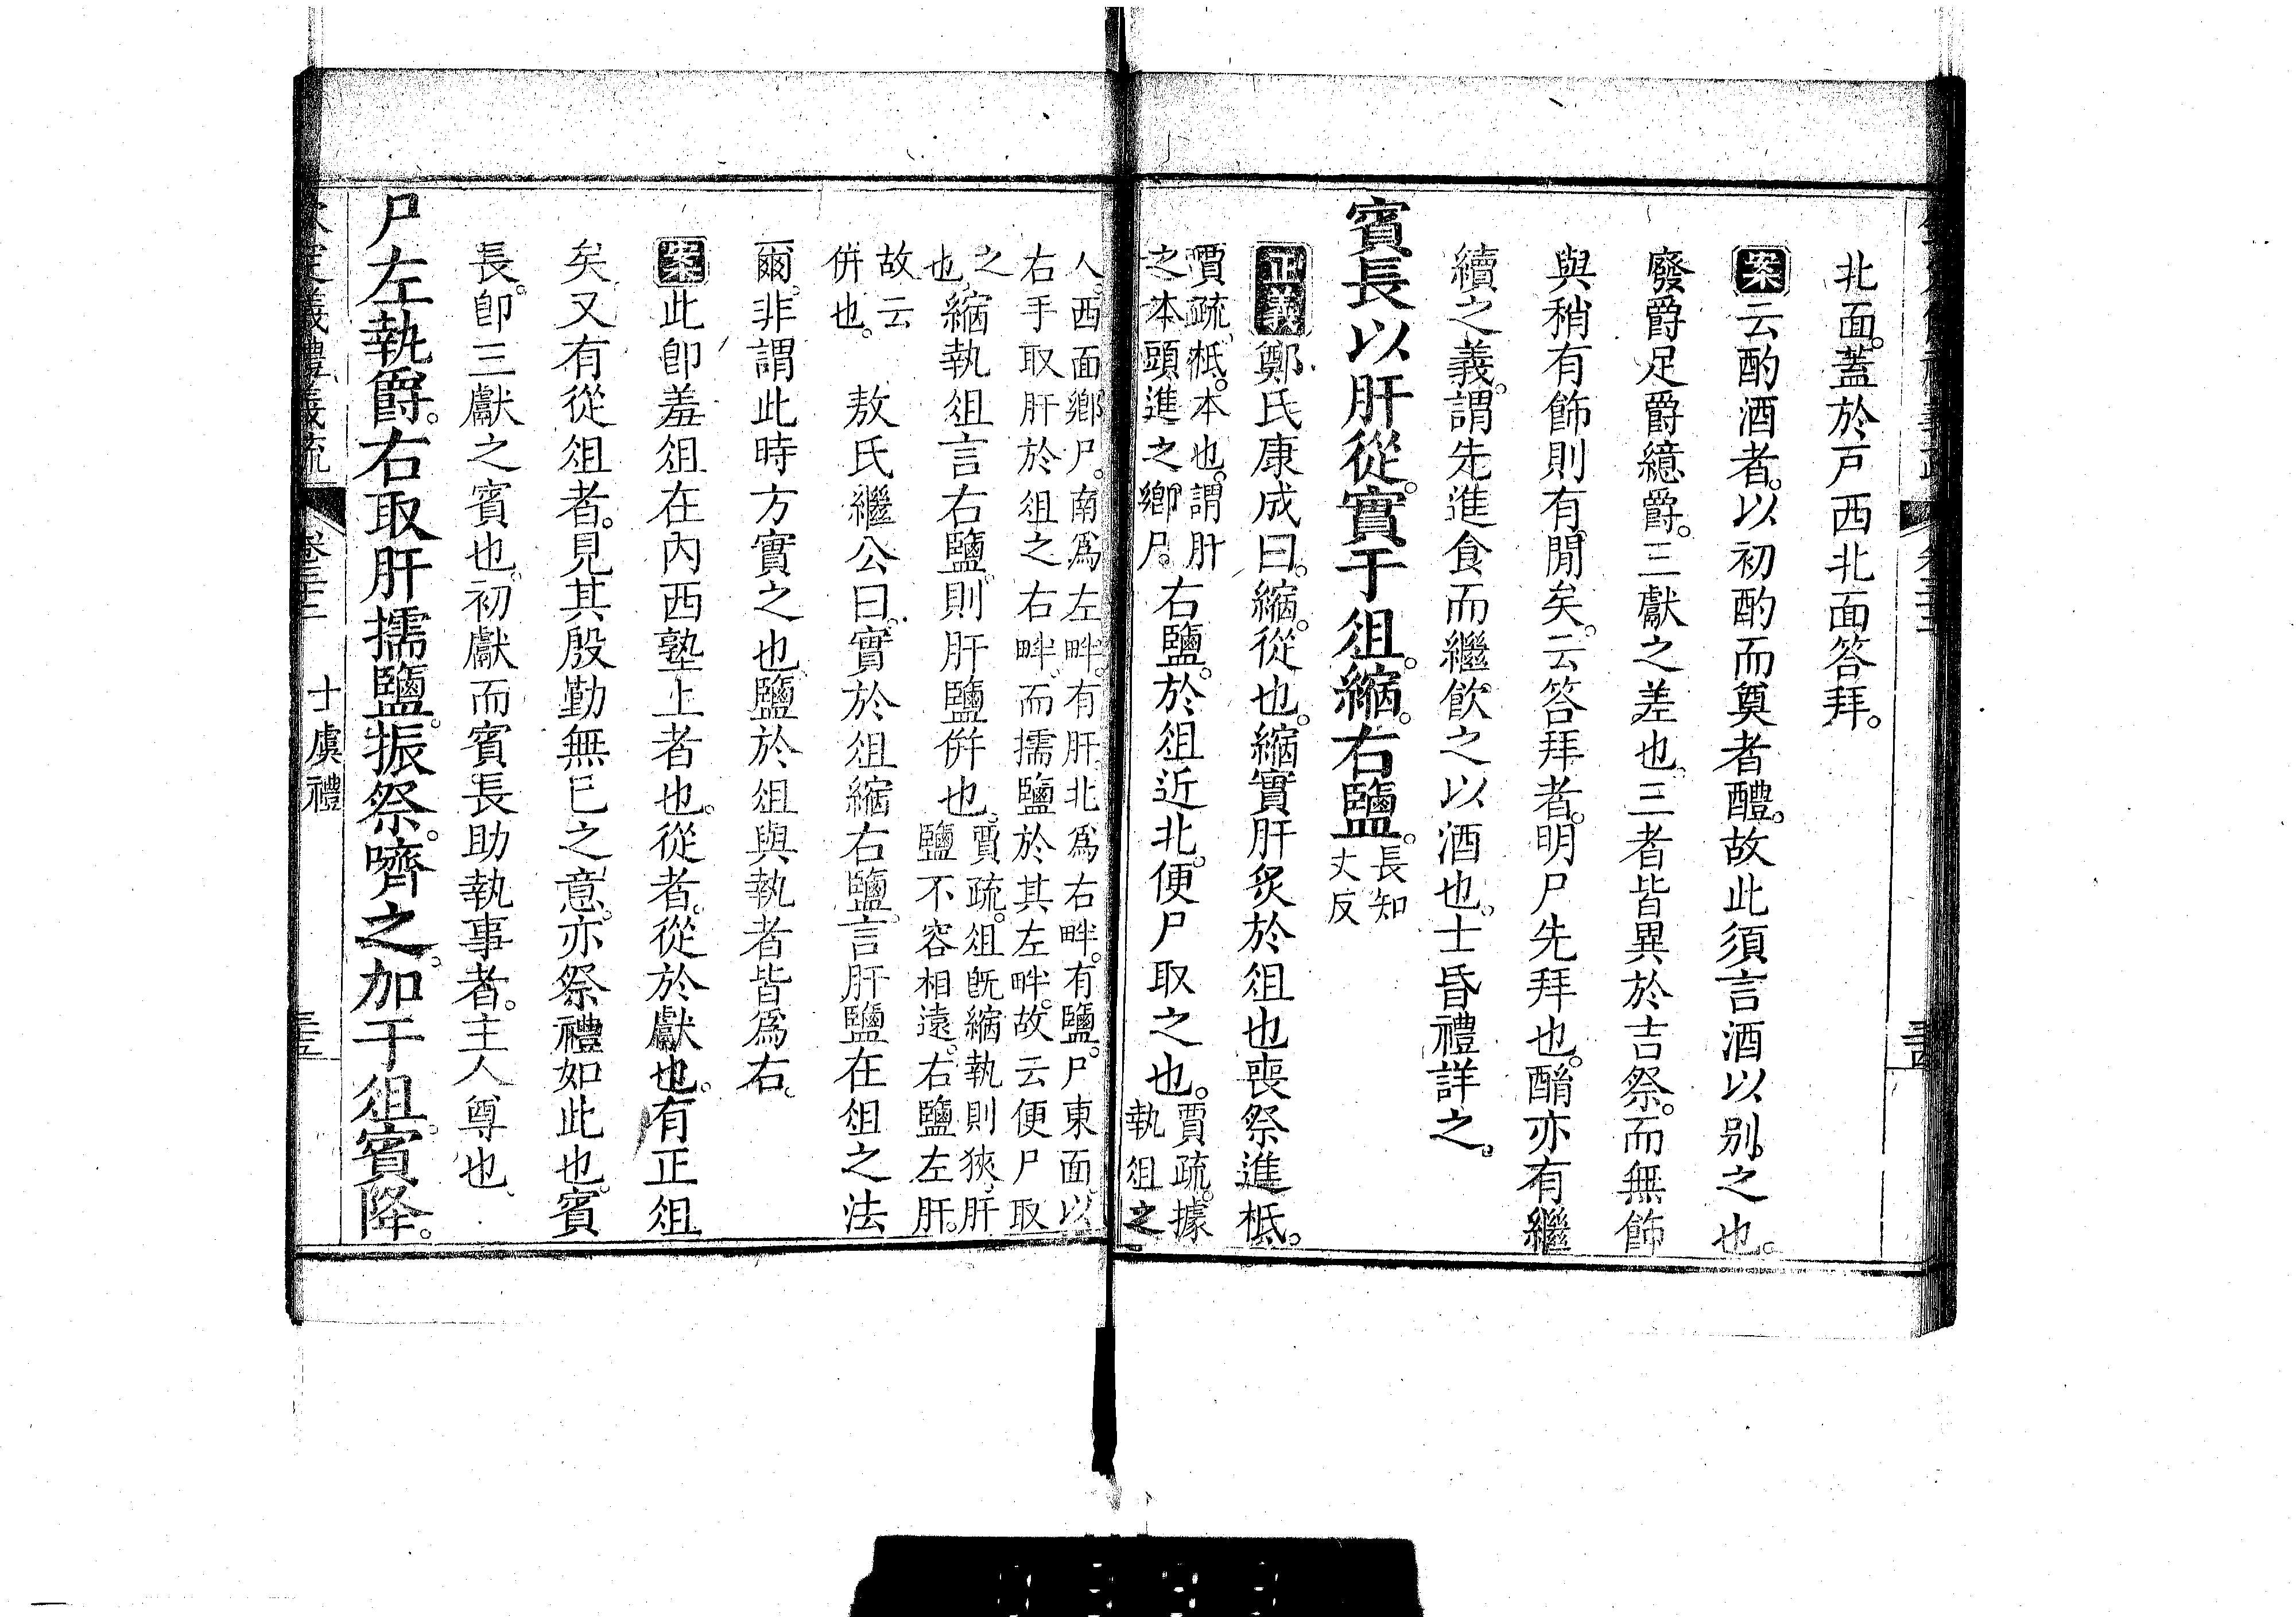 北面。蓋於戸西北面答拜。
案云酌酒者。以初酌而奠者醴。故此須言酒以别之也。
廢爵足爵繶爵。三獻之差也。三者皆異於吉祭。而無飾
與稍有飾則有閒矣。云答拜者。明尸先拜也。酳亦有繼
續之義。謂先進食而繼飲之以酒也。士昏禮詳之。
賓長以肝從。實于俎。縮。右鹽。長知
丈反
正義鄭氏康成曰。縮。從也。縮實肝炙於俎也喪祭進柢。
賈疏。柢。本也。謂肝
之本頭進之鄉尸。右鹽。於俎近北。便尸取之也。賈疏。據
執俎之
人。西面鄉尸。南爲左畔。有肝。北爲右畔。有鹽。尸東面。以
右手取肝於俎之右畔。而擩鹽於其左畔。故云便尸取
之
也。縮執俎言右鹽。則肝鹽併也。賈疏。俎旣縮執則狹。肝
鹽不容相遠。右鹽左肝。
故云
併也。 敖氏繼公曰。實於俎縮右鹽。言肝鹽在俎之法
爾。非謂此時方實之也。鹽於俎與執者皆爲右。
案此卽羞俎在內西塾上者也。從者。從於獻也。有正俎
矣。又有從俎者。見其殷勤無已之意。亦祭禮如此也。賓
長。卽三獻之賓也。初獻而賓長助執事者。主人尊也。
尸左執爵。右取肝擩鹽。振祭。嚌之。加于俎。賓降。
義禮義疏 士虞禮